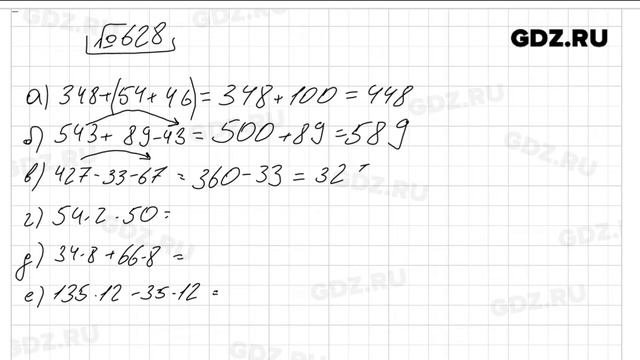 №628
GDZ.RU
а) 348+(54+46)=348+100=448
б) 543+89-43=500+89=589
в) 427-33-67=360-33=32
г) 54·2·50=
д) 34·8+66·8=
е) 135·12-35·12=